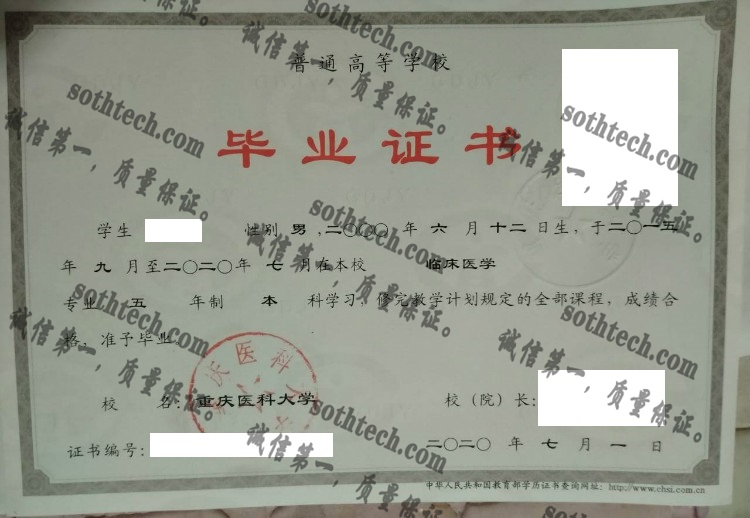 普通高等学校
毕业证书
学生 性别 男 ,二〇〇〇 年 六 月 十二 日生，于二〇一五
年 九 月至二〇二〇年 七 月在本校 临床医学
专业 五 年制 本 科学习，修完教学计划规定的全部课程，成绩合
格，准予毕业。
庆医科大
校 名：重庆医科大学
校（院）长：
证书编号：
二〇二〇 年 七 月 一 日
中华人民共和国教育部学历证书查询网址：http://www.chsi.com.cn
sothtech.com
诚信第一，质量保证。
sothtech.com
诚信第一，质量保证。
sothtech.com
诚信第一，质量保证。
sothtech.com
诚信第一，质量保证。
sothtech.com
诚信第一，质量保证。
sothtech.com
诚信第一，质量保证。
sothtech.com
诚信第一，质量保证。